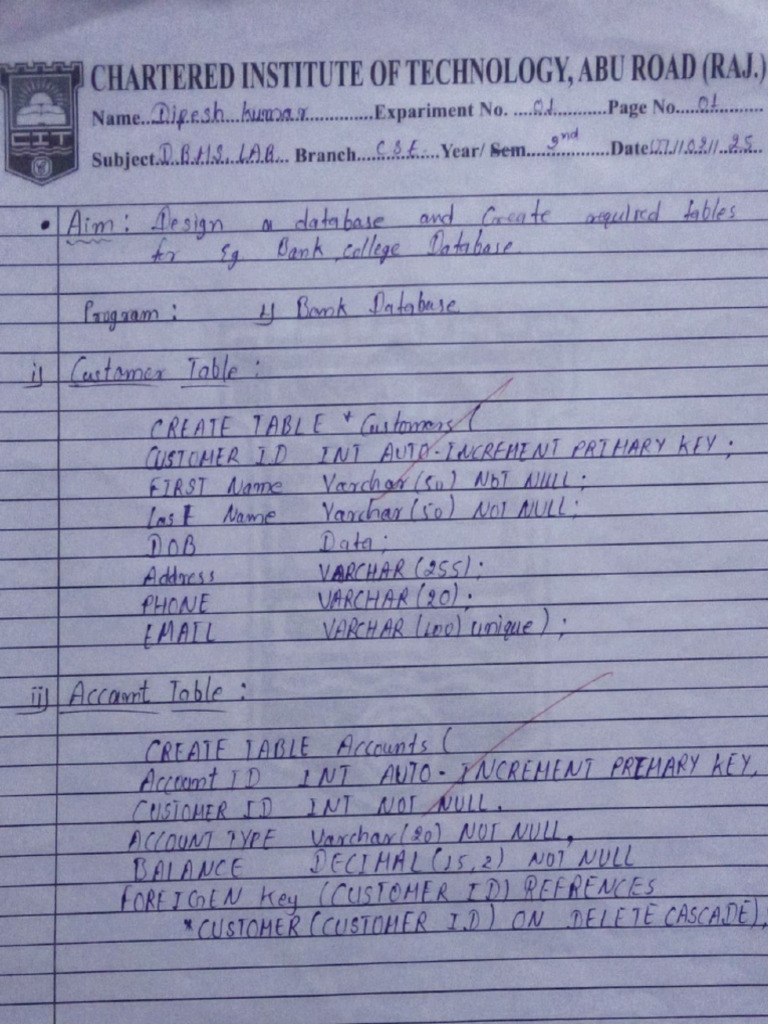 CHARTERED INSTITUTE OF TECHNOLOGY, ABU ROAD (RAJ.)
CIT
Name..Dipesh kumar..............Expariment No. ....01...........Page No....01..........
Subject.D.B.M.S. LAB... Branch.....CSE.....Year/ Sem....2nd.............Date
• Aim : Design a database and Create required tables
for Eg Bank, college Database
Program : 1) Bank Database
i) Customer Table :
CREATE TABLE * Customers (
CUSTOMER ID INT AUTO-INCREMENT PRIMARY KEY ;
FIRST Name Varchar (50) NOT NULL ;
Last Name Varchar (50) NOT NULL ;
DOB Data ;
Address VARCHAR (255) ;
PHONE VARCHAR (20) ;
EMAIL VARCHAR (100) unique ) ;
ii) Account Table :
CREATE TABLE Accounts (
Account ID INT AUTO - INCREMENT PRIMARY KEY,
CUSTOMER ID INT NOT NULL.
ACCOUNT TYPE Varchar (20) NOT NULL,
BALANCE DECIMAL (15,2) NOT NULL
FOREIGEN Key (CUSTOMER ID) REFRENCES
*CUSTOMER (CUSTOMER ID) ON DELETE CASCADE),